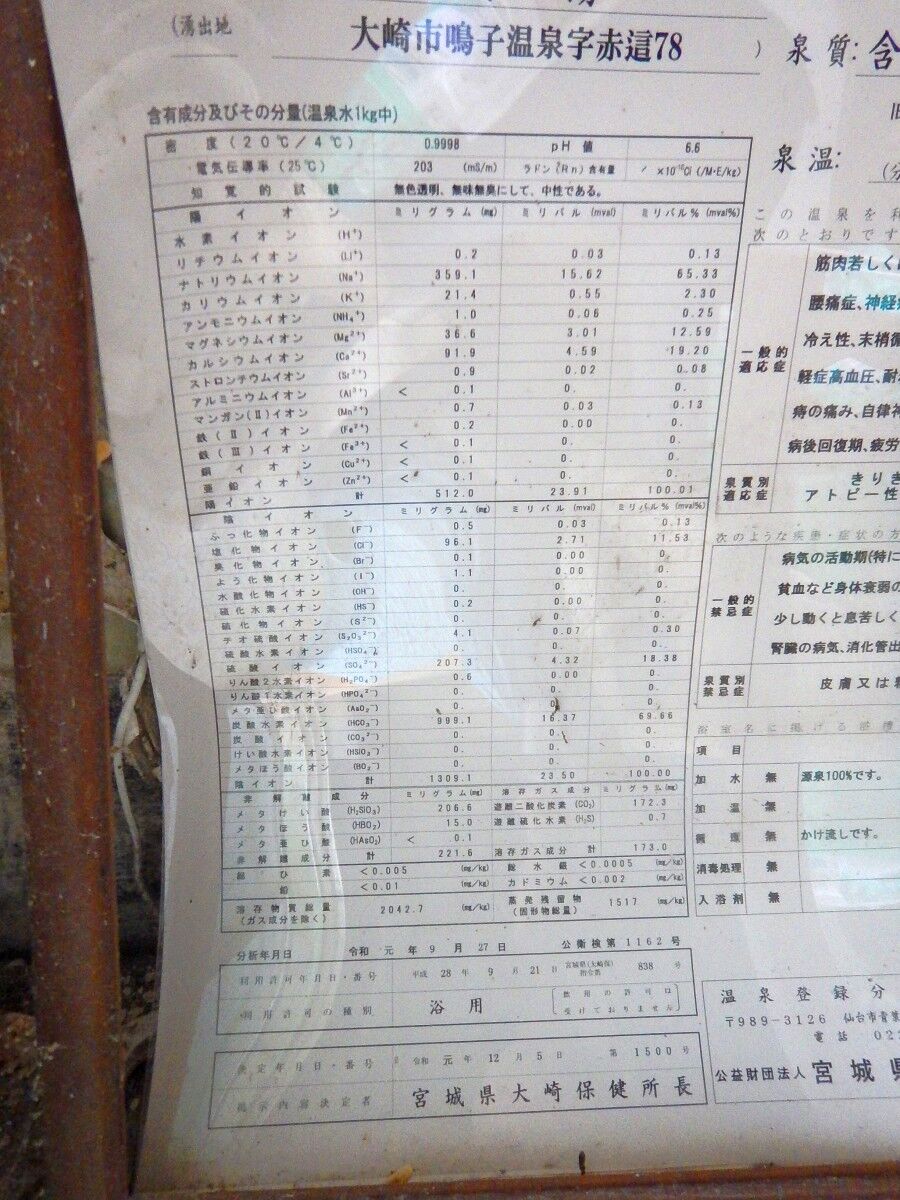 (湧出地 大崎市鳴子温泉字赤這78 ) 泉質: 含
含有成分及びその分量(温泉水1kg中)
密度(20℃/4℃) 0.9998 pH値 6.6
電気伝導率(25℃) 203 (mS/m) ラドン(Rn)含有量 ×10⁻¹⁰Ci(/M·E/kg)
知覚的試験 無色透明、無味無臭にして、中性である。
陽イオン ミリグラム(mg) ミリバル(mval) ミリバル%(mval%)
水素イオン (H⁺)
リチウムイオン (Li⁺) 0.2 0.03 0.13
ナトリウムイオン (Na⁺) 359.1 15.62 65.33
カリウムイオン (K⁺) 21.4 0.55 2.30
アンモニウムイオン (NH₄⁺) 1.0 0.06 0.25
マグネシウムイオン (Mg²⁺) 36.6 3.01 12.59
カルシウムイオン (Ca²⁺) 91.9 4.59 19.20
ストロンチウムイオン (Sr²⁺) 0.9 0.02 0.08
アルミニウムイオン (Al³⁺) < 0.1 0. 0.
マンガン(Ⅱ)イオン (Mn²⁺) 0.7 0.03 0.13
鉄(Ⅱ)イオン (Fe²⁺) 0.2 0.00 0.
鉄(Ⅲ)イオン (Fe³⁺) < 0.1 0. 0.
銅イオン (Cu²⁺) < 0.1 0. 0.
亜鉛イオン (Zn²⁺) < 0.1 0. 0.
陽イオン 計 512.0 23.91 100.01
陰イオン ミリグラム(mg) ミリバル(mval) ミリバル%(mval%)
ふっ化物イオン (F⁻) 0.5 0.03 0.13
塩化物イオン (Cl⁻) 96.1 2.71 11.53
臭化物イオン (Br⁻) 0.1 0.00 0.
よう化物イオン (I⁻) 1.1 0.00 0.
水酸化物イオン (OH⁻) 0. 0. 0.
硫化水素イオン (HS⁻) 0.2 0.00 0.
硫化物イオン (S²⁻) 0. 0. 0.
チオ硫酸イオン (S₂O₃²⁻) 4.1 0.07 0.30
硫酸水素イオン (HSO₄⁻) 0. 0. 0.
硫酸イオン (SO₄²⁻) 207.3 4.32 18.38
りん酸2水素イオン (H₂PO₄⁻) 0.6 0.00 0.
りん酸1水素イオン (HPO₄²⁻) 0. 0. 0.
メタ亜ひ酸イオン (AsO₂⁻) 0. 0. 0.
炭酸水素イオン (HCO₃⁻) 999.1 16.37 69.66
炭酸イオン (CO₃²⁻) 0. 0. 0.
けい酸水素イオン (HSiO₃⁻) 0. 0. 0.
メタほう酸イオン (BO₂⁻) 0. 0. 0.
陰イオン 計 1309.1 23.50 100.00
非解離成分 ミリグラム(mg) 溶存ガス成分 ミリグラム(mg)
メタけい酸 (H₂SiO₃) 206.6 遊離二酸化炭素 (CO₂) 172.3
メタほう酸 (HBO₂) 15.0 遊離硫化水素 (H₂S) 0.7
メタ亜ひ酸 (HAsO₂) < 0.1
非解離成分 計 221.6 溶存ガス成分 計 173.0
総ひ素 <0.005 (mg/kg) 総水銀 <0.0005 (mg/kg)
鉛 <0.01 (mg/kg) カドミウム <0.002 (mg/kg)
溶存物質総量 (ガス成分を除く) 2042.7 (mg/kg) 蒸発残留物 (固形物総量) 1517 (mg/kg)
分析年月日 令和 元年9月27日 公衛検第1162号
利用許可年月日・番号 平成 28年9月21日 宮城県(大崎保)指令第 838 号
利用許可の種別 浴用 [飲用の許可は受けておりません]
決定年月日・番号 令和 元年12月5日 第1500号
掲示内容決定者 宮城県大崎保健所長
泉温:
この温泉を利
次のとおりです
一般的適応症
筋肉若しくは
腰痛症、神経
冷え性、末梢循
軽症高血圧、耐
痔の痛み、自律神
病後回復期、疲労
泉質別適応症
きりき
アトピー性
次のような疾患・症状の方
一般的禁忌症
病気の活動期(特に
貧血など身体衰弱の
少し動くと息苦しく
腎臓の病気、消化管出
泉質別禁忌症
皮膚又は粘
浴室名に掲げる浴槽
項目
加水 無 源泉100%です。
加温 無
循環 無 かけ流しです。
消毒処理 無
入浴剤 無
温泉登録分
〒989-3126 仙台市青葉
電話 022
公益財団法人 宮城県